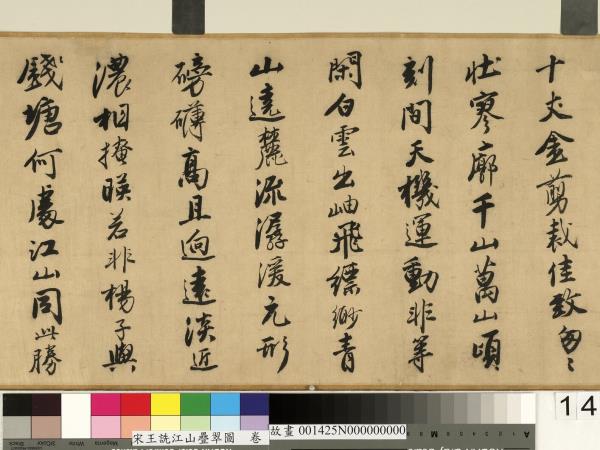 十丈金剪裁佳致匆〻
壯寥廓千山萬山頃
刻間天機運動非等
閑白雲出岫飛縹緲青
山遶麓流潺湲元形
磅礴高且迥遠淡近
濃相撩映若非楊子與
錢塘何處江山同此勝
14
宋王詵江山疊翠圖 卷
故畫 001425N000000000
Magenta White 3/Color Black